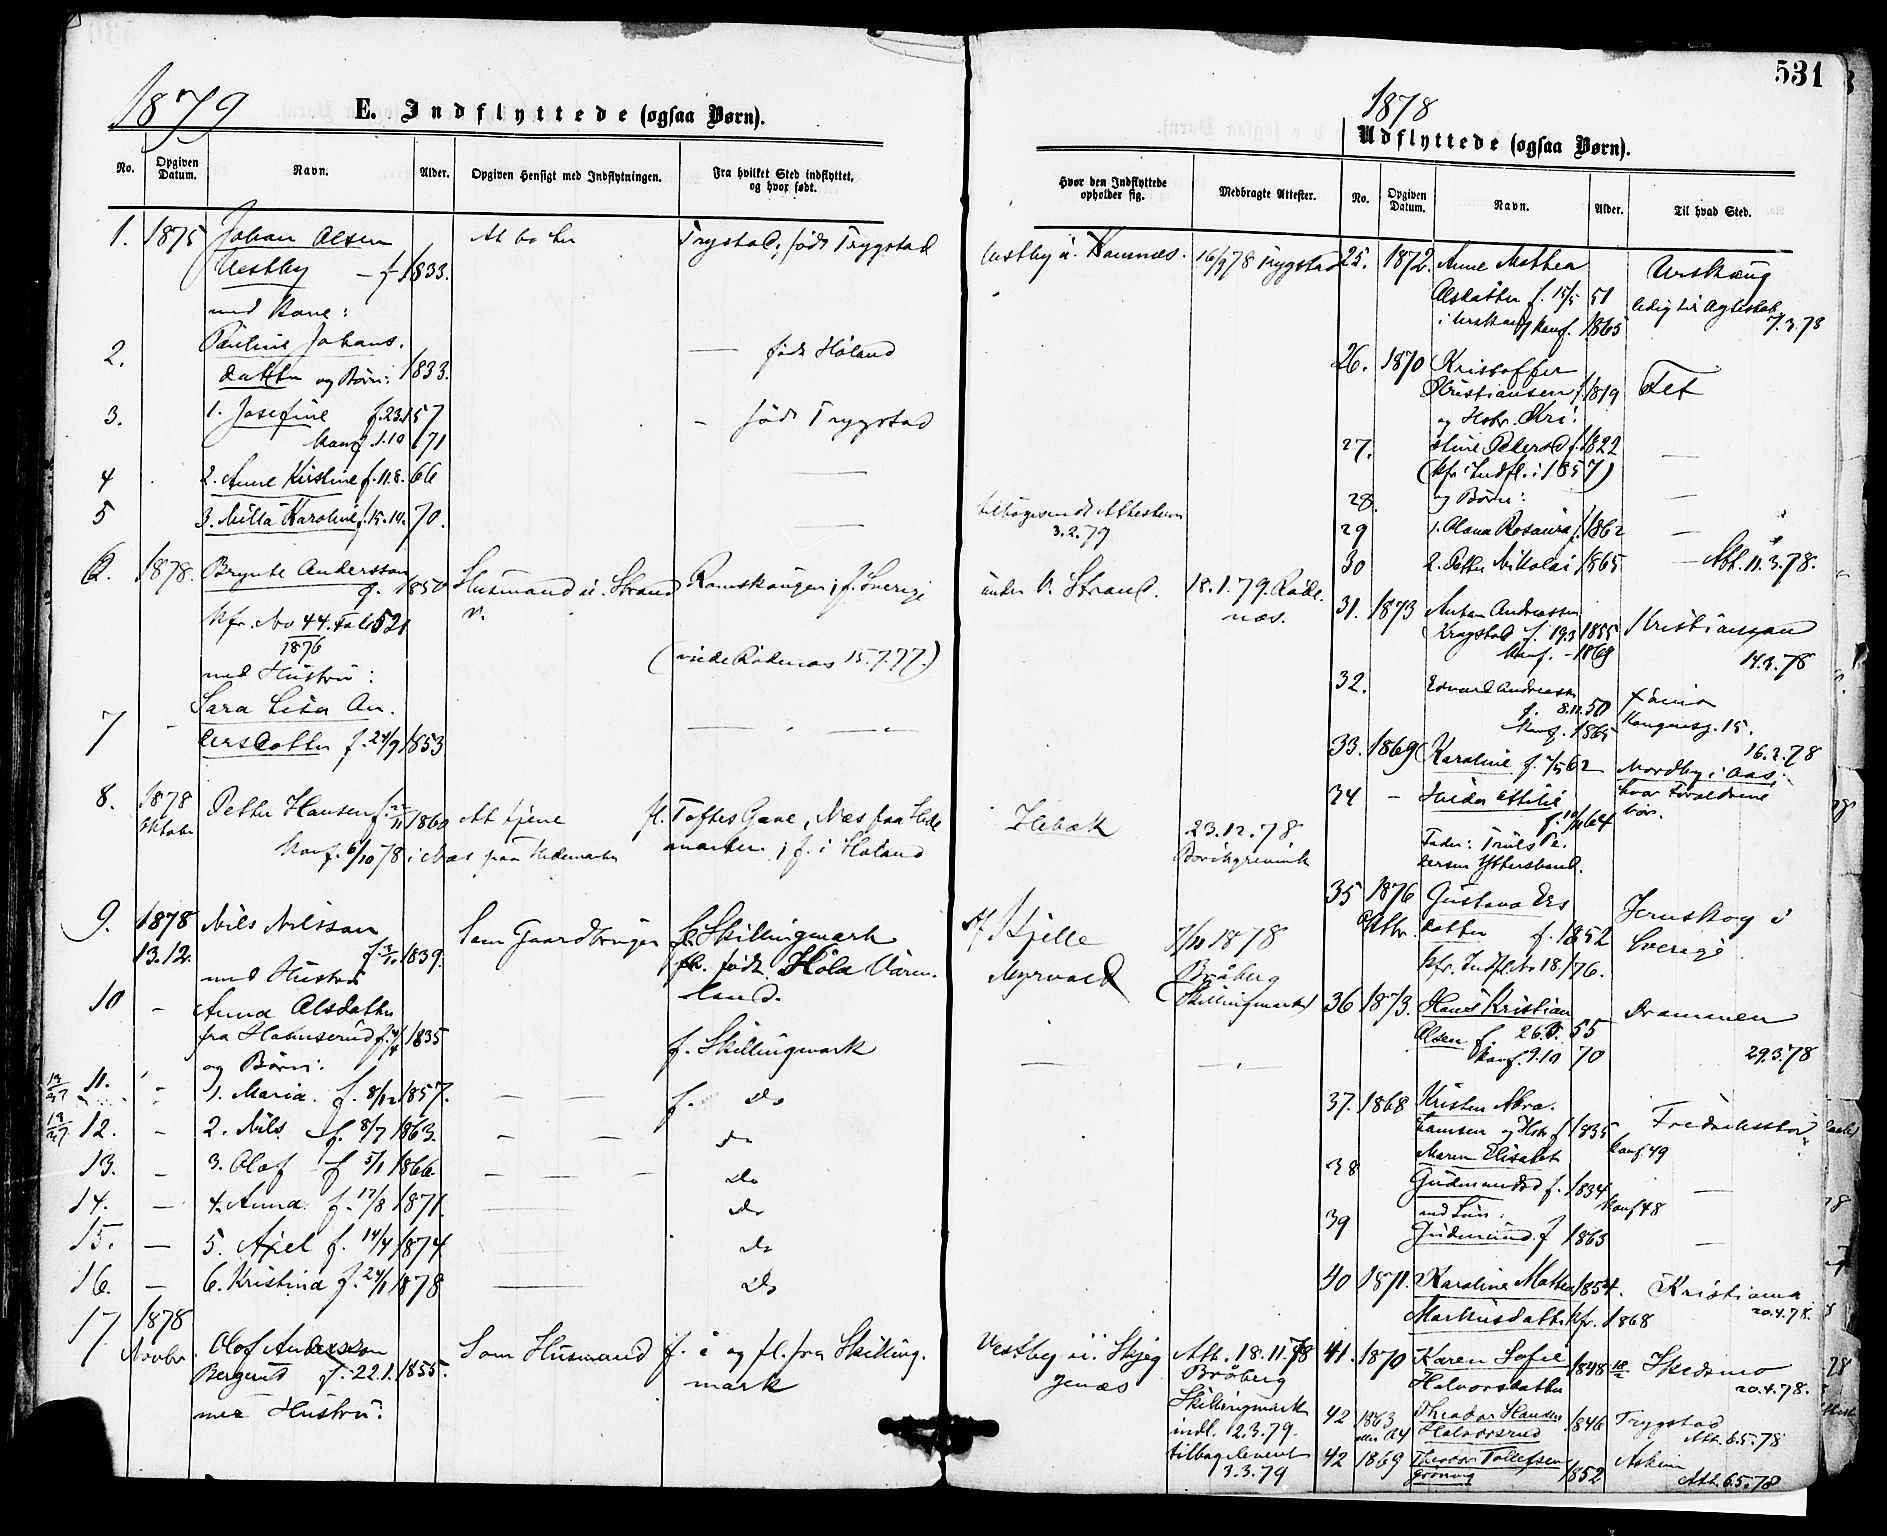 531
1879
E. Indflyttede (ogsaa Børn).
No.
Opgiven Datum.
Navn.
Alder.
Opgiven Hensigt med Indflytningen.
Fra hvilket Sted indflyttet, og hvor født.
1. 1875 Johan Olsen At bo her Trygstad; født Trygstad
Vestby – f. 1833.
med Kone:
2. Pauline Johans. — født Høland
datter og Børn: 1833.
3. 1. Josefine f. 23.1 57 – født Trygstad
Konf. 1.10 71
4 2. Anne Kirstine f. 11.8. 66 —
5 3. Milla Karoline f. 15.10. 70. —
6. 1878. Brynte Andersson Husmand u. Strand Romskougen; f. Sverige
f. 1850 v.
Kfr. No 44. Fol. 521
1876
med Hustru: (viede Rødenæs 15.7.77.)
7 – Sara Lisa An.
dersdatter f. 24/9 1853
8. 1878 Oktober Petter Hansen f. 1860 At tjene fl. Toftes Gave, Næs paa Hede
Konf. 6/10 78 i Næs paa Hedemarken marken; f. i Høland
9. 1878 Nils Nilsson Som Gaardbruger fl. Skillingmark
13.12. 1839. født Høla Värm.
med Hustru land.
10 – Anna Olsdatter
fra 1835 f. Skillingmark
og Børn:
11. – 1. Maria. f. 8/12 1857. — — f. Do
12. – 2. Nils f. 8/7 1863. — — Do
13. – 3. Olof f. 5/1 1866. — — Do
14. – 4. Anna f. 17/8 1871. — Do
15. – 5. Axel f. 14/4 1874. — Do
16. – 6. Kristina f. 24/1 1878 — Do
17 1878 Novbr. Olof Andersson Som Husmand f. i og fl. fra Skilling.
Bergerud f. 22.1. 1855. mark
med Hustru:
1878
Udflyttede (ogsaa Børn).
Hvor den Indflyttede opholder sig.
Medbragte Attester.
No.
Opgiven Datum.
Navn.
Alder.
Til hvad Sted.
Vestby u. 16/9 78 Trygstad 25. 1872. Anne Mathea Urskoug
Olsdatter f. 15/5 51 ledig til Ægteskab
i Urskoug Konf. 1865 7.3.78
26. 1870 Kristoffer
Kristiansen f. 1819 Fet
og Hstr. Kri:
27. stine Petersd. f. 1822 —
(kfr. Indfl. i 1857)
28. og Børn: —
tilbagesendt Attesten
3.2.79
29 1. Olava Rosaura f. 1862 –
30 2. Petter Nikolai 1865 – Att. 11.3.78.
under V. Strand. 18.1.79. Røde.
næs.
31. 1873 Anton Andreassen Kristiansan
Kragstad f. 19.3 1855
Konf. – 1869 14.2.78
32. Edvard Andreassen
f. 8.11. 50 Kongensg. 15.
Konf. 1865 16.2.78
33. 1869 Karoline f. 7/5 62 Nordby i Aas,
34 – Hilda Attilie hvor Forældrene
64 bor.
Fader: Truls Pe.
dersen Ytterstrand.
Hebæk 23.12.78
Borchgrevink
35 1876 Gustava Ers Jernskog i
Oktbr. datter f. 1852 Sverige
kfr. Indfl. No 18./76.
Kjelle 7/11 1878
Myrvold Bråberg
(Skillingmark)
36 1873. Hans Kristian Drammen
Olsen f. 26. 55
Konf. 9.10 70 29.3.78
— – . –
37. 1868 Kristen Abra. Fredriksstad
hamsen og Hstr. f. 1835 Konf. 49
38 Maren Elisabet
Gudmundsd. f. 1834 —
Konf. 48
med Søn:
39 Gudmund f. 1865 —
40 1871. Karoline Mathea 1854. Kristiania
Markusdatter kfr. 1868 20.4.78.
Vestby u. Skjøg Att. 18.11.78 41. 1870 Karen Sofie 1848 Skedsmo
genæs Bråberg Halvorsdatter 20.4.78.
Skillingmark 42 1863 eller 64 Theodor Hansen 1846 Trygstad
indl. 2.3.79. Halvorsrud Att. 6.5.78
tilbageleveret 42 1869 Theodor Tollefsen 1852 Askim
3.3.79 Att. 6.5.78